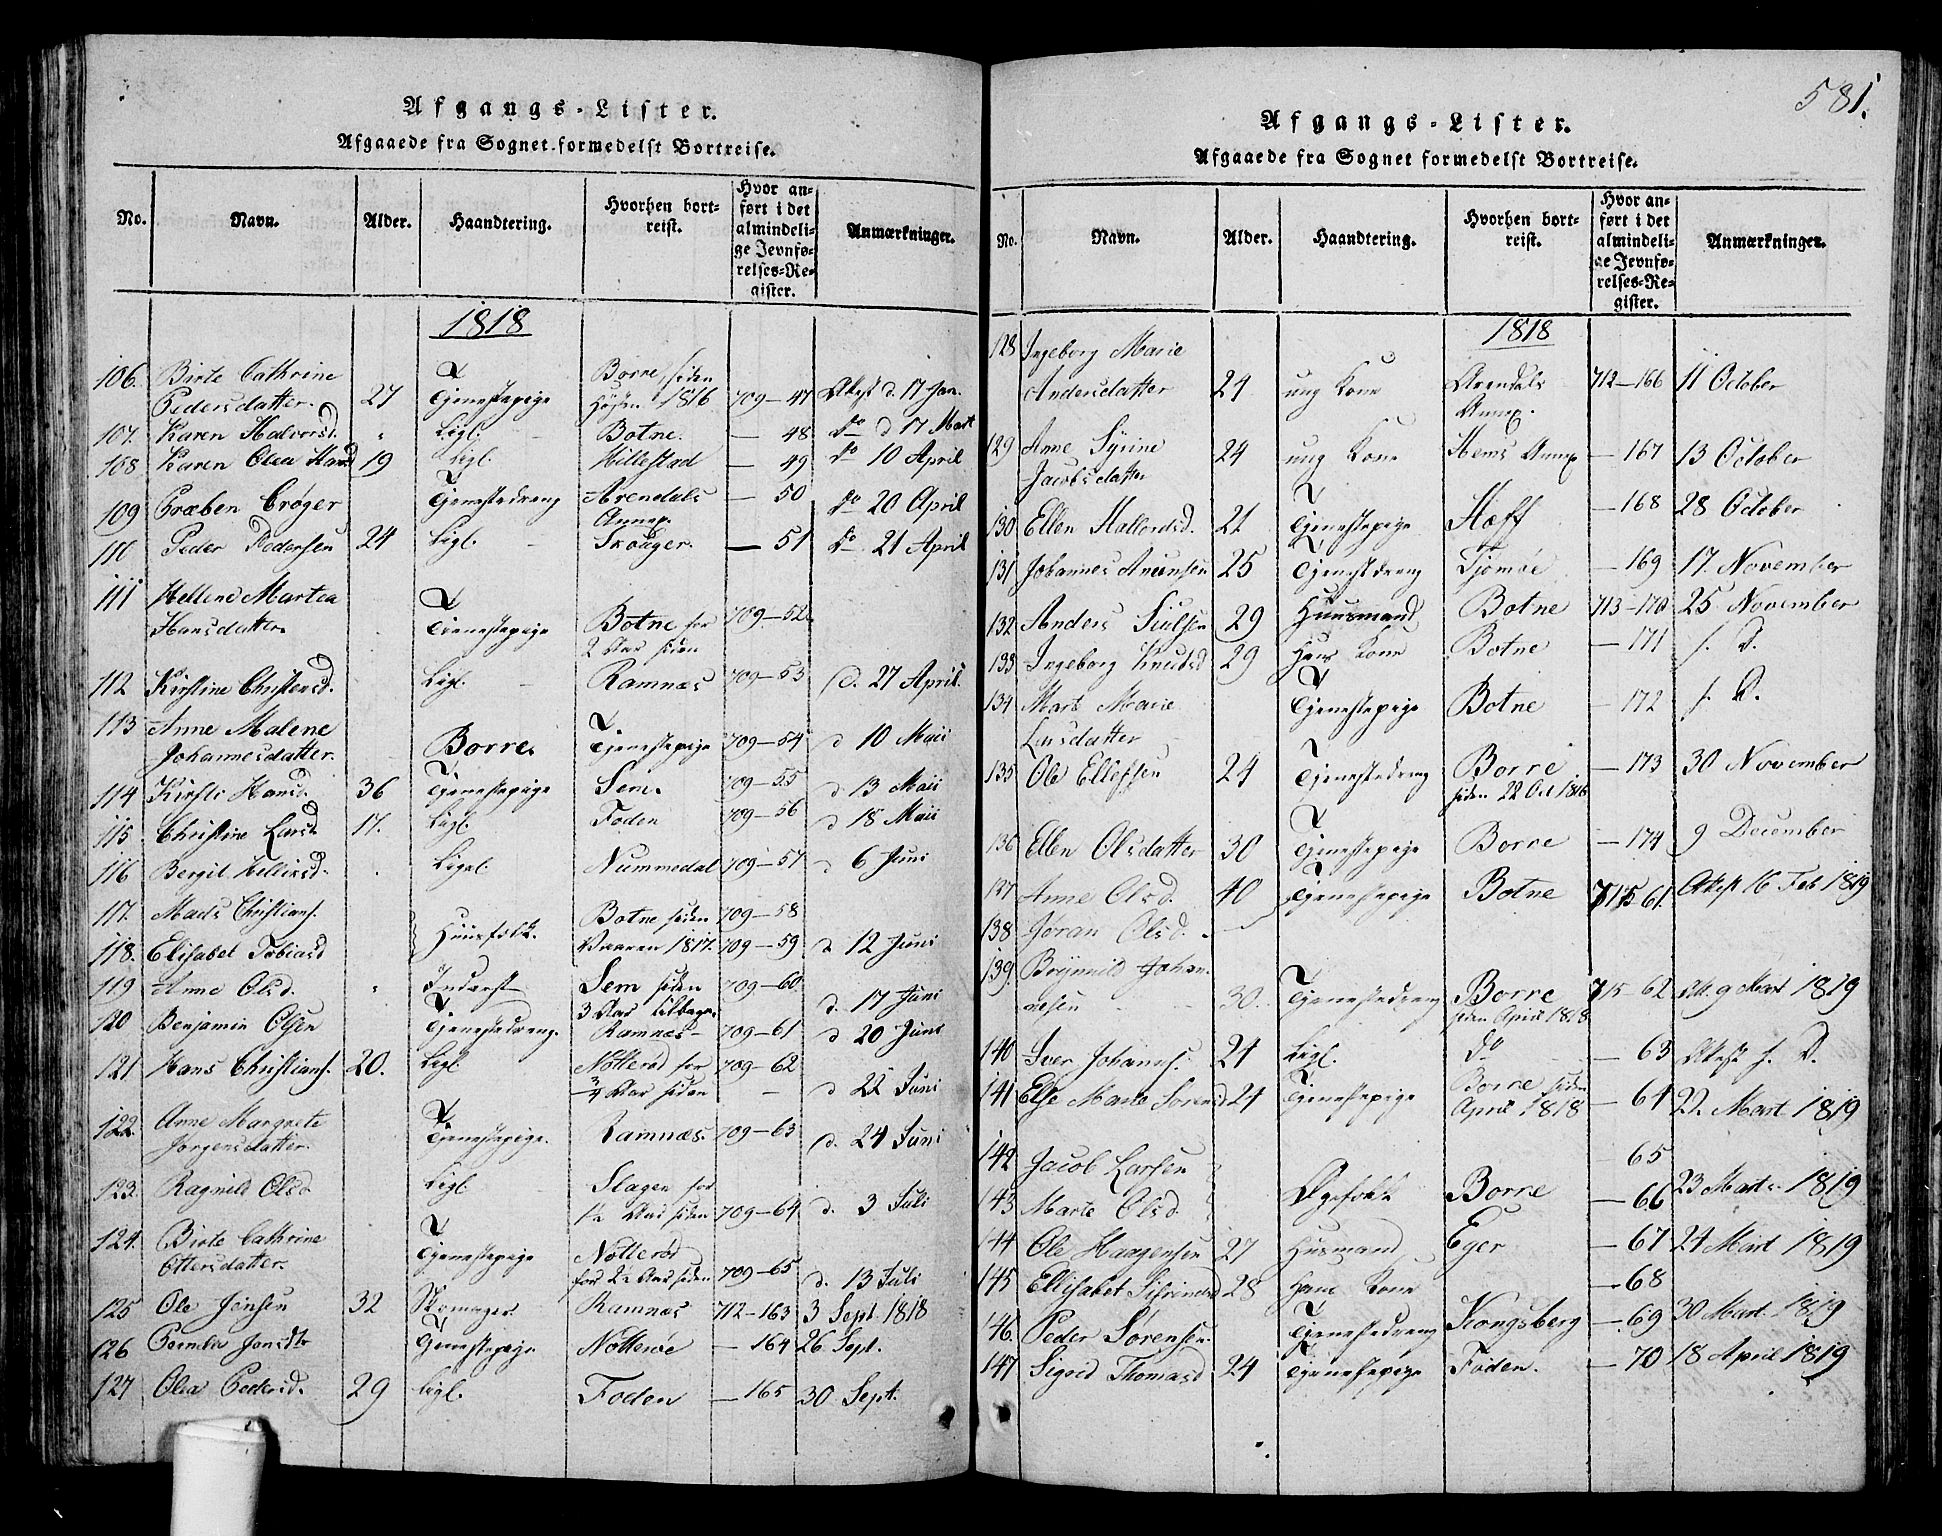 Afgangs-Lister.
Afgaaede fra Sognet formedelst Bortreise.
No. Navn. Alder. Haandtering. Hvorhen bortreist. Hvor anført i det almindelige Jevnførelses-Register. Anmærkninger.
1818
106. Birte Cathrine Pedersdatter. 27 Tjenestepige Borre, siden 1816 709-47 Attest d. 17 Jan.
107. Karen Halvorsd. Ligl. Botne. - 48 do d 17 Mart
108. Karen Olea Hansd 19 Ligl. Hillestad - 49 do 10 April
109 Præben Crøger Tjenestedreng Arendals Annep. - 50 do 20 April
110 Peder Pedersen 24 Ligl. Skouger. - 51 do 21 April
111 Hellene Martea Hansdatter. Tienestepige Botne for 2 Aar siden 709-52
112 Kirstine Christensd. Ligl. Ramnæs 709-53 d. 27 April.
113 Anne Malene Johannesdatter. Borre. Tjenestepige 709-54 d 10 Maii
114 Kirsti Hansd. 36 Tjenestepige Sem. 709-55 d 13 Maii
115 Christine Larsd. 17. Ligl. Foden 709-56 d 18 Maii
116 Bergit Hellixsd. Ligl. Nummedal 709-57 d 6 Juni
117. Mads Christians. Huusfolk. Botne siden 709-58
118. Elisabet Tobiasd Vaaren 1817. 709-59 d 12 Juni
119 Anne Olsd. Inderst Sem siden 3 Aar tilbage. 709-60 d. 17 Juni
120 Benjamin Olsen Tjenestedreng. Ramnæs 709-61 d 20 Juni
121. Hans Christians. 20. Ligl Nøtterød for 3/4 Aar siden 709-62 d 22 Juni
122. Anne Margrete Jørgensdatter. Tjenestepige. Ramnæs. 709-63 d. 24 Juni
123. Ragnild Olsd Ligl Slagen for 1½ Aar siden 709-64 d. 3 Juli
124. Birte Cathrine Ottersdatter. Tjenestepige Nøtterød for 2½ Aar siden 709-65 d. 13 Juli
125 Ole Jensen 32 Skomager Ramnæs 712-163 3 Sept. 1818
126 Pernelle Jonsdtr Tjenestepige Nøtterøe - 164 26 Sept.
127 Olea Pedersd. 29 Ligl. Foden - 165 30 Sept.
581.
Afgangs-Lister.
Afgaaede fra Sognet formedelst Bortreise.
No. Navn. Alder. Haandtering. Hvorhen bortreist. Hvor anført i det almindelige Jevnførelses-Register. Anmærkninger.
1818
128 Ingeborg Marie Andersdatter 24 ung Kone Arendals Annep. 712-166 11 October
129 Anne Syrine Jacobsdatter 24 ung Kone Hems Annep - 167 13 October
130 Ellen Hallordsd. 21 Tjenestepige Hæff - 168 28 October
131 Johannes Anunsen 25 Tjenestdreng Tjømøe - 169 17. November
132 Anders Siulsen 29 Huusmand Botne 713-170 25 November
133 Ingeborg Knudsd 29 Hans Kone Botne - 171 s. D.
134 Mart Marie Larsdatter Tjenestepige Botne - 172 s. D.
135 Ole Ellefsen 24 Tjenestedreng Borre siden 22 Oct 1816 - 173 30 November
136 Ellen Olsdatter 30 Tjenestepige Borre - 174 9 December
137 Anne Olsd. 40 Tjenestepige Botne 715 61. Attest 16 Feb 1819
138 Jøran Olsd.
139. Brynnild Johannesen 30. Tjenestedreng Borre siden April 1818 715-62 Att. 9 Mart 1819
140 Sver Johanns. 24 Ligl. do - 63 Attest s. D.
141 Else Marie Sørensd 24 Tjenestepige Borre siden April 1818 - 64 22. Mart 1819
142 Jacob Larsen - 65
143 Marte Olsd. Ægefolk Borre - 66 23 Mart. 1819
144 Ole Haagensen 27 Husmand Eger - 67 24 Mart 1819
145 Ellisabet Sifrinsd 28 Hans Kone - 68
146. Peder Sørensen. Tjenestedreng Kongsberg - 69 30 Mart. 1819
147 Sigrid Thomasd 24 Tjenestepige Foden. - 70 18 April 1819